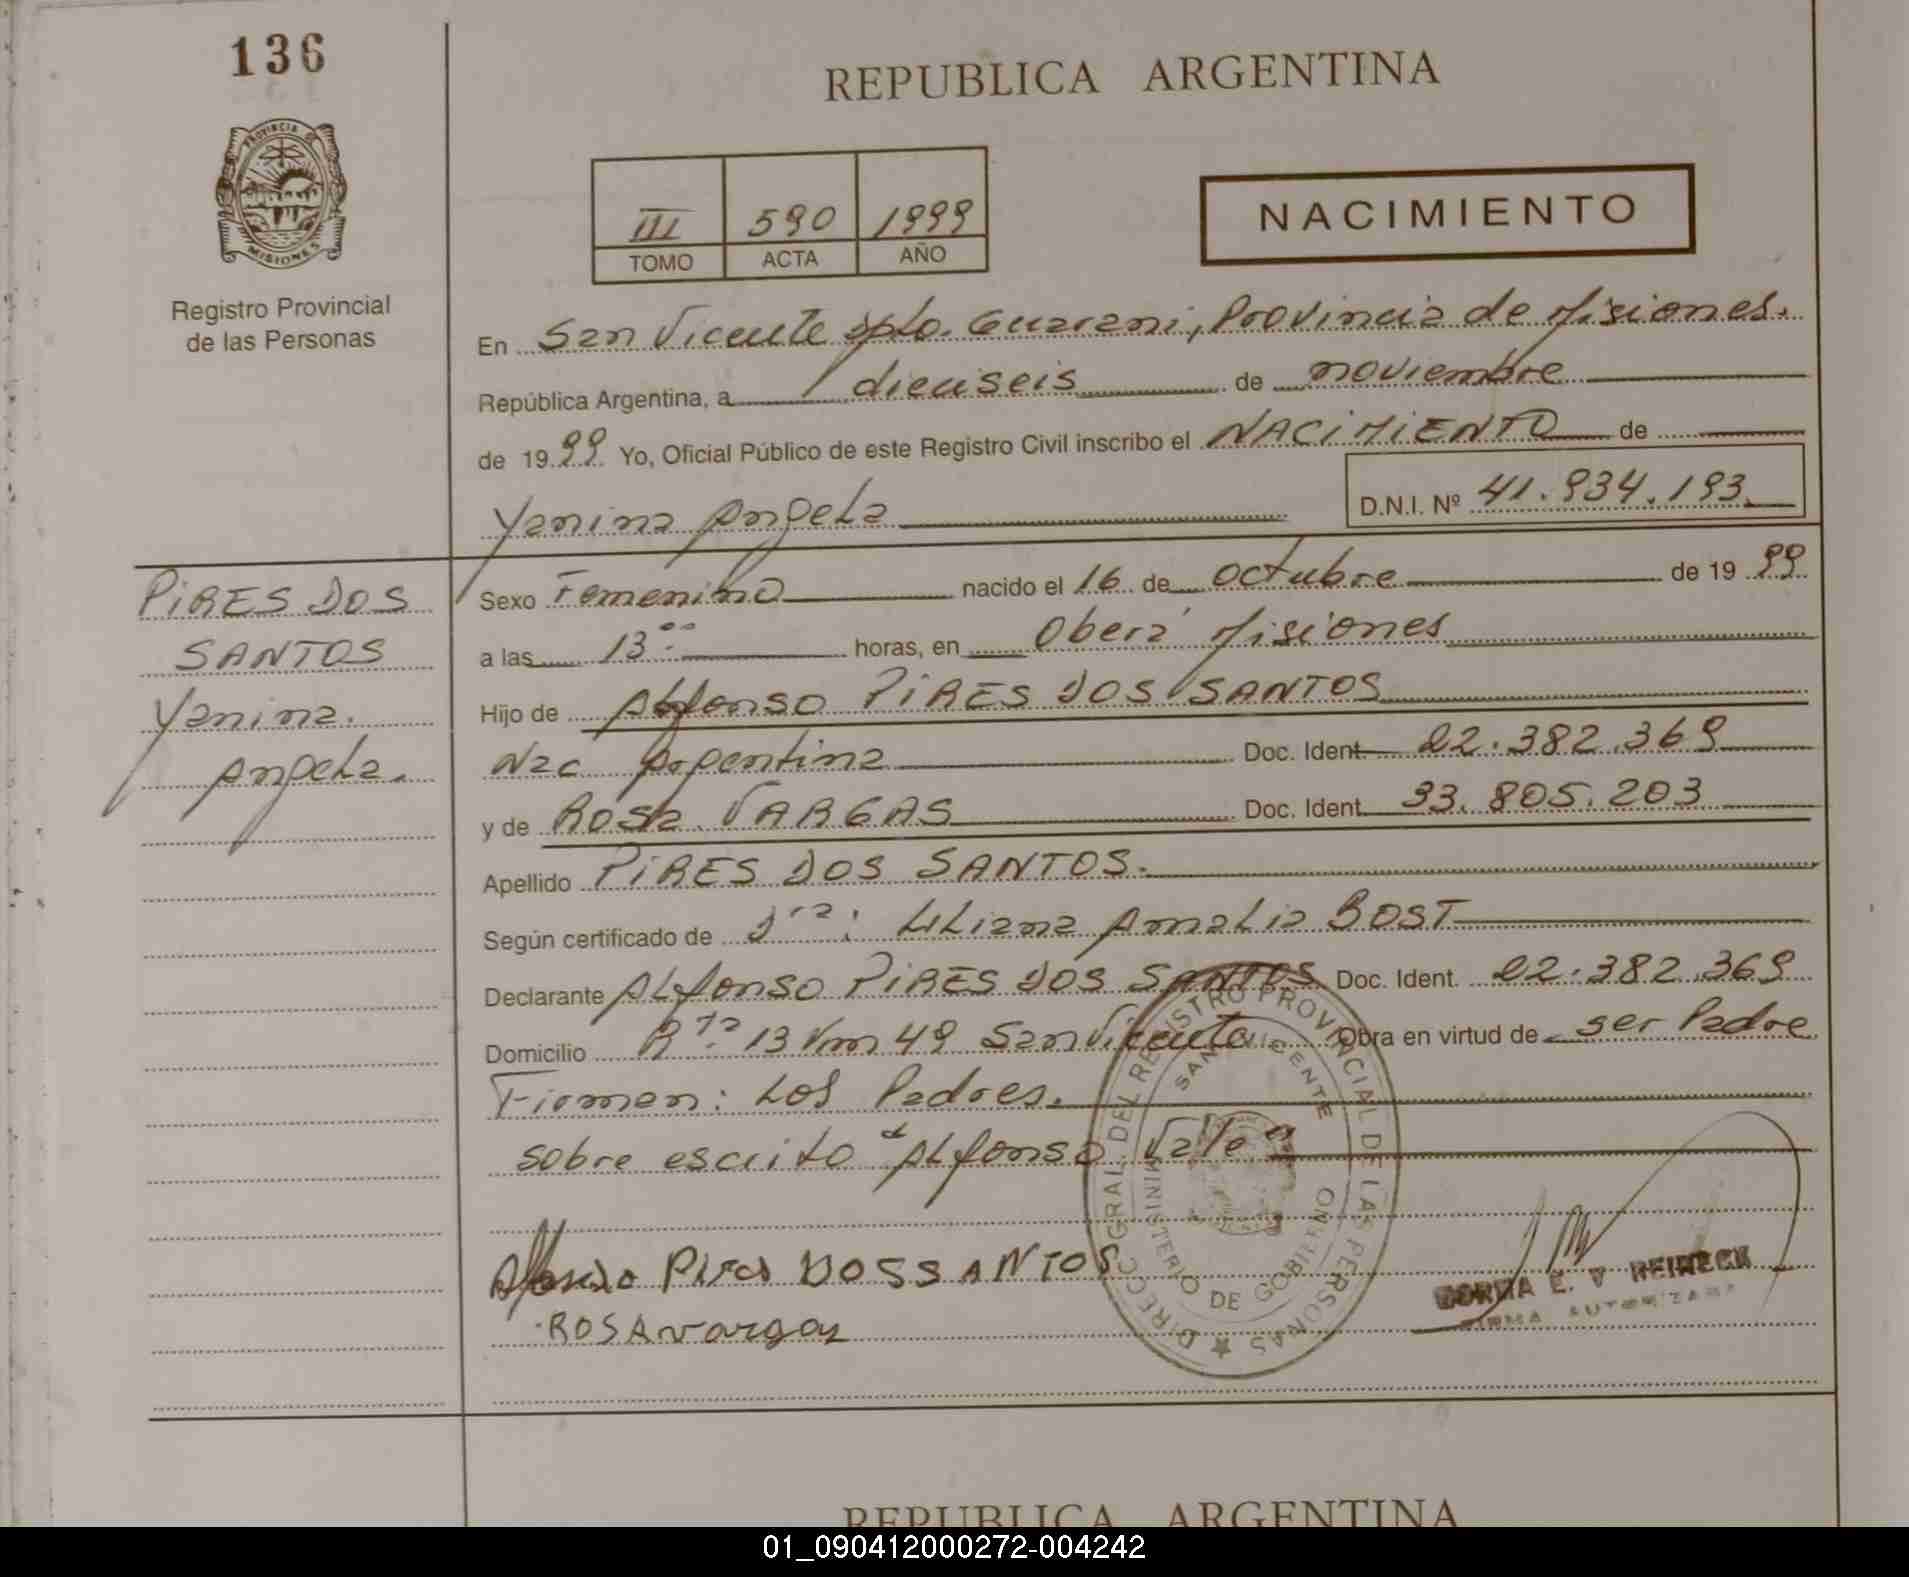 136
REPUBLICA ARGENTINA
PROVINCIA DE
MISIONES
Registro Provincial
de las Personas
III 590 1999
TOMO ACTA AÑO
NACIMIENTO
En San Vicente Dpto. Guarani, Provincia de Misiones.
República Argentina, a dieciseis de noviembre
de 1999 Yo, Oficial Público de este Registro Civil inscribo el NACIMIENTO de
Yanina Angela D.N.I. Nº 41.934.193.
PIRES DOS
SANTOS
Yanina.
Angela.
Sexo Femenino nacido el 16 de octubre de 1999
a las 13:00 horas, en Oberá Misiones
Hijo de Alfonso PIRES DOS SANTOS
Nac Argentina Doc. Ident. 22.382.369
y de Rosa VARGAS Doc. Ident. 33.805.203
Apellido PIRES DOS SANTOS.
Según certificado de Dra: Liliana Amalia BOST
Declarante Alfonso PIRES DOS SANTOS Doc. Ident. 22.382.369
Domicilio Rta 13 Km 49 San Vicente Obra en virtud de ser Padre
Firman: Los Padres.
sobre escrito "Alfonso" Vale
Alfonso Pires DOSSANTOS
ROSA vargas
DIRECC. GRAL DEL REGISTRO PROVINCIAL DE LAS PERSONAS
SAN VICENTE
MINISTERIO DE GOBIERNO
E. V REINECK
FIRMA AUTORIZADA
REPUBLICA ARGENTINA
01_090412000272-004242